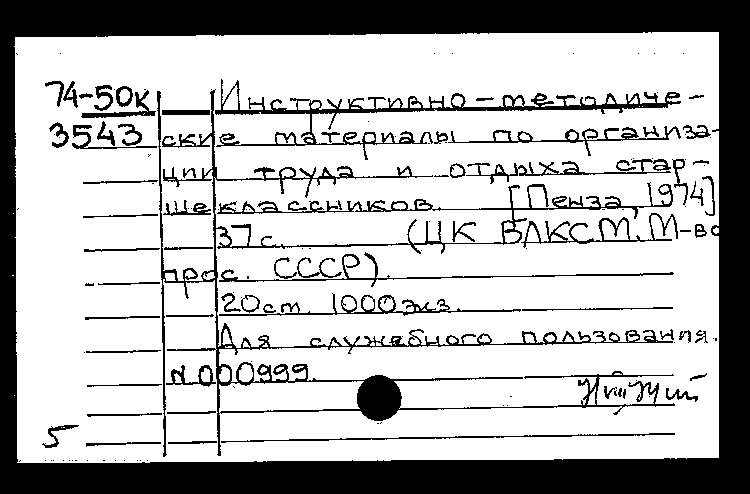 74-50к Инструктивно-методиче-
3543 ские материалы по организа-
ции труда и отдыха стар-
шеклассников. [Пенза, 1974]
37 с. (ЦК ВЛКСМ. М-во
прос. СССР).
20 ст. 1000 экз.
Для служебного пользования.
N 000999.
5